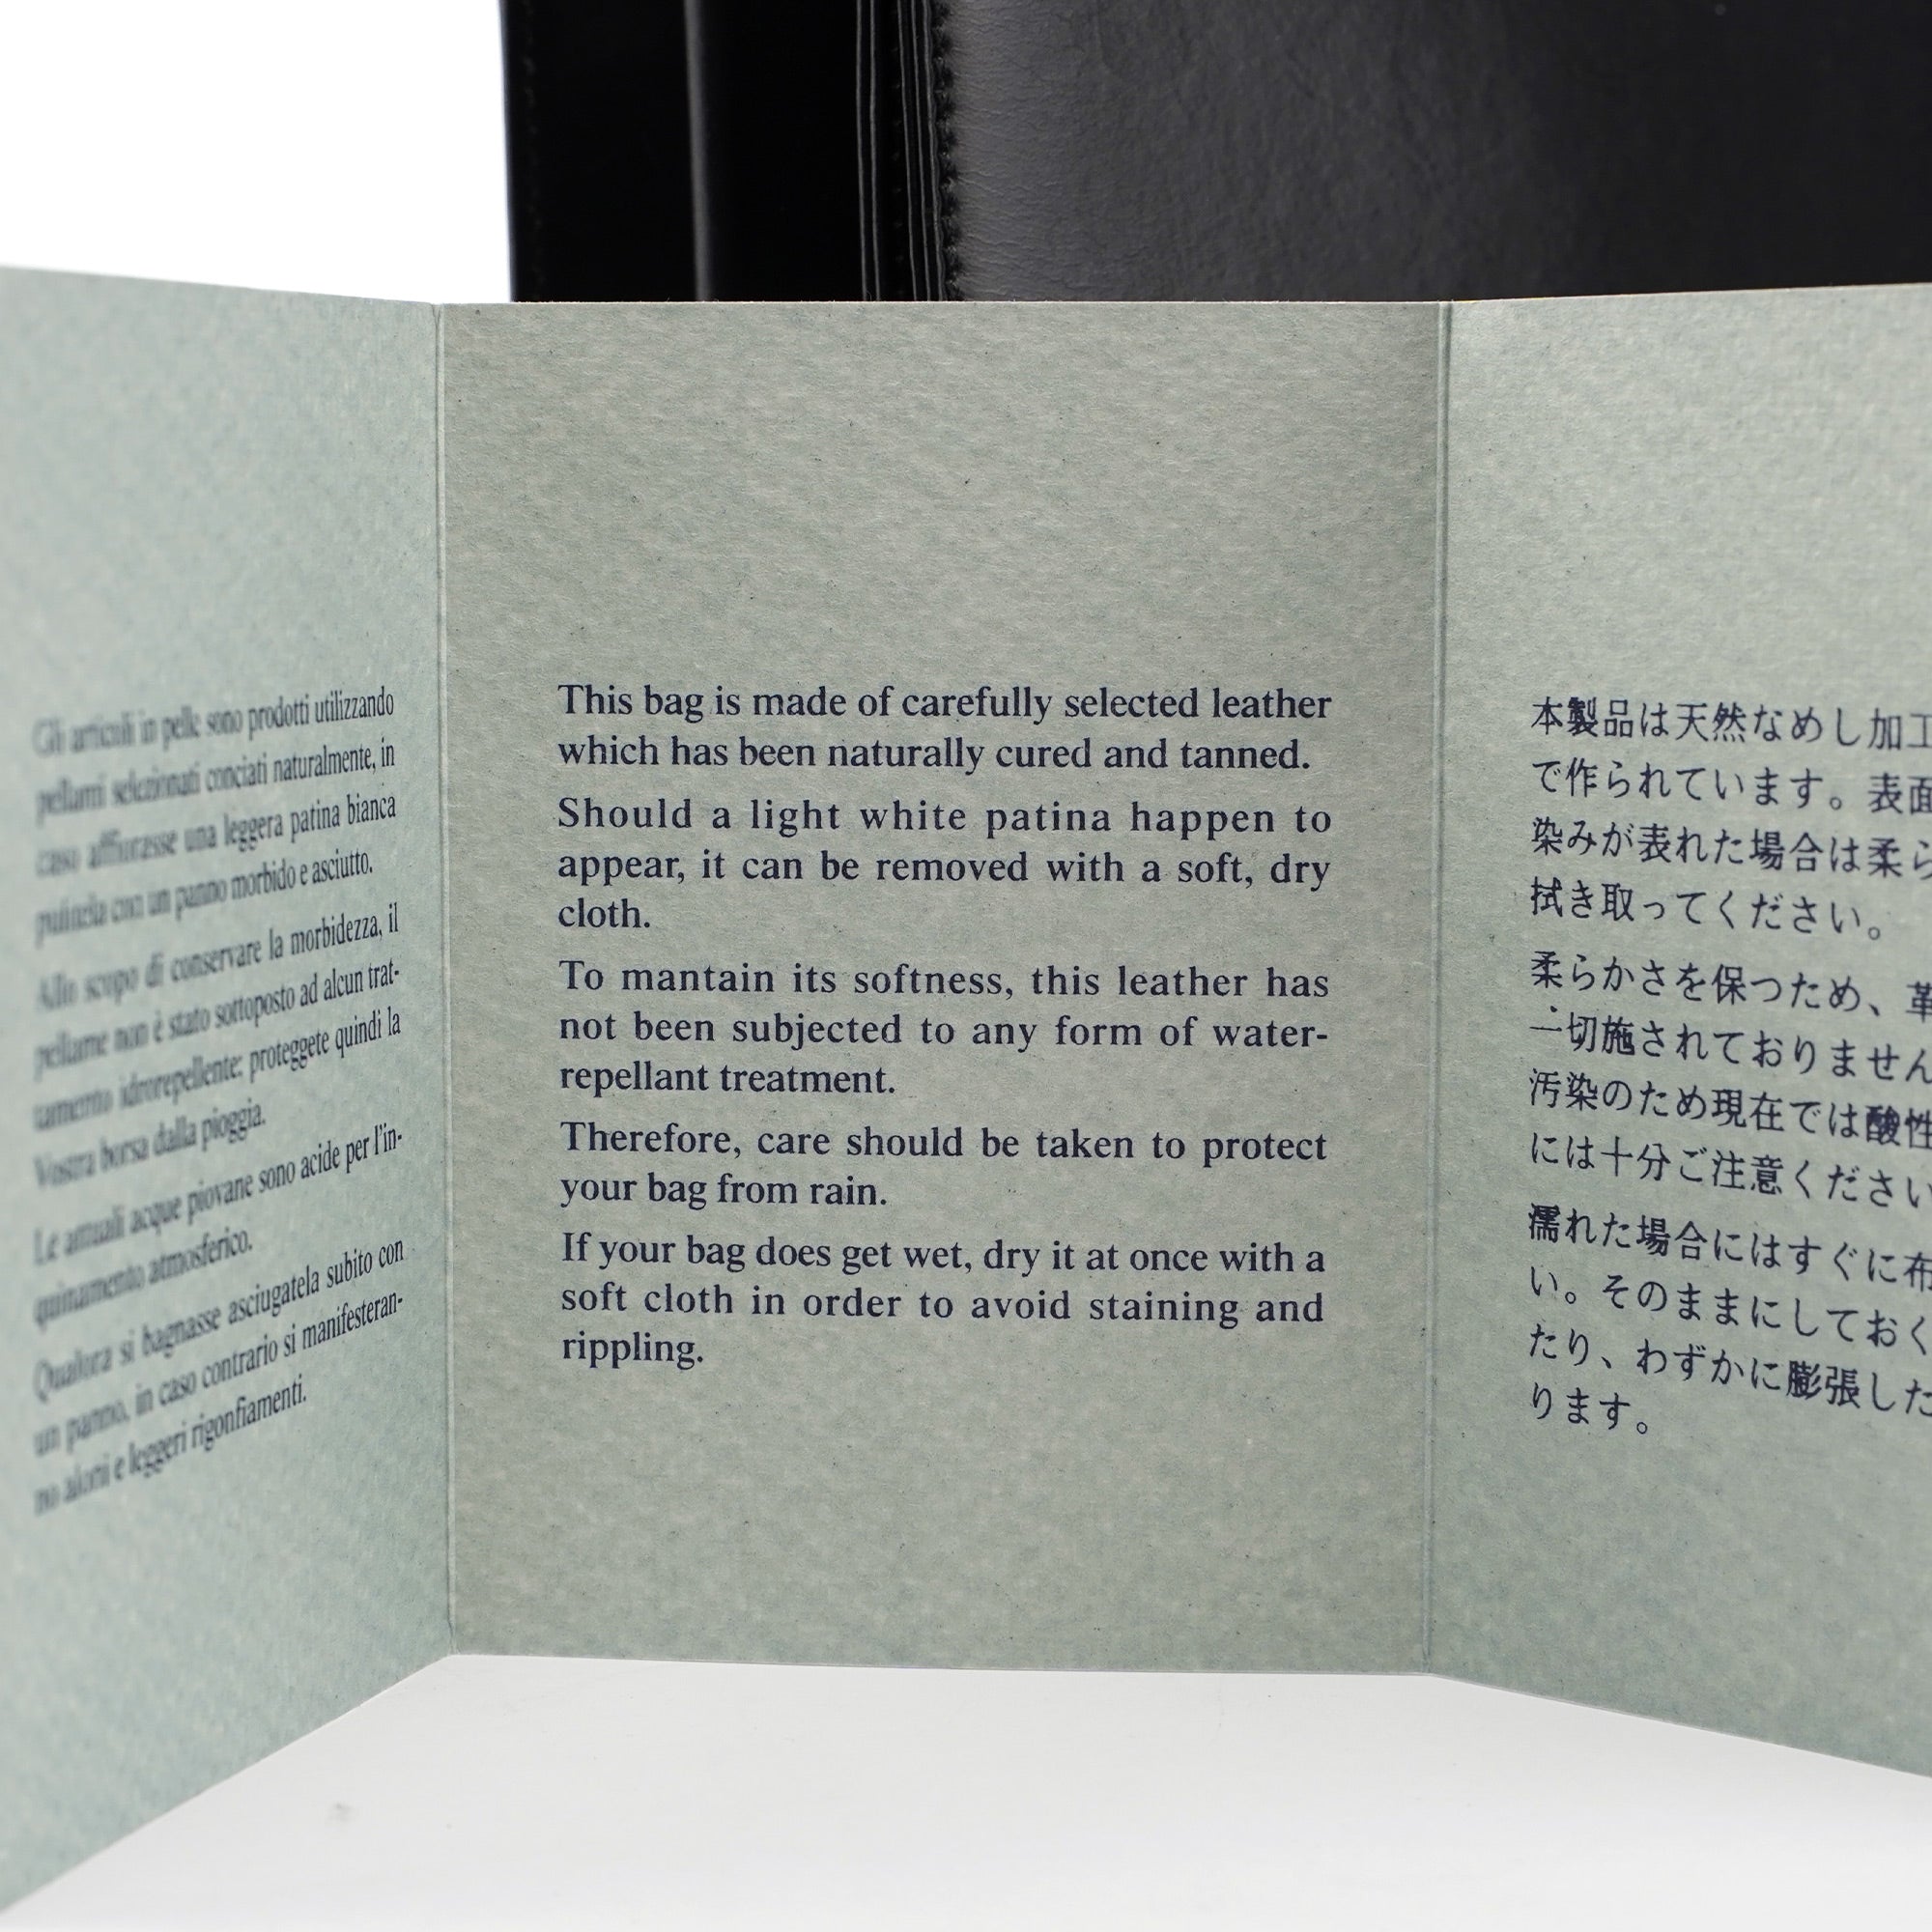 Gli articoli in pelle sono prodotti utilizzando
pellami selezionati conciati naturalmente, in
caso affiorasse una leggera patina bianca
pulitela con un panno morbido e asciutto.
Allo scopo di conservare la morbidezza, il
pellame non è stato sottoposto ad alcun trat-
tamento idrorepellente: proteggete quindi la
Vostra borsa dalla pioggia.
Le attuali acque piovane sono acide per l'in-
quinamento atmosferico.
Qualora si bagnasse asciugatela subito con
un panno, in caso contrario si manifesteran-
no aloni e leggeri rigonfiamenti.
This bag is made of carefully selected leather
which has been naturally cured and tanned.
Should a light white patina happen to
appear, it can be removed with a soft, dry
cloth.
To mantain its softness, this leather has
not been subjected to any form of water-
repellant treatment.
Therefore, care should be taken to protect
your bag from rain.
If your bag does get wet, dry it at once with a
soft cloth in order to avoid staining and
rippling.
本製品は天然なめし加工
で作られています。表面
染みが表れた場合は柔ら
拭き取ってください。
柔らかさを保つため、革
一切施されておりません
汚染のため現在では酸性
には十分ご注意ください
濡れた場合にはすぐに布
い。そのままにしておく
たり、わずかに膨張した
ります。